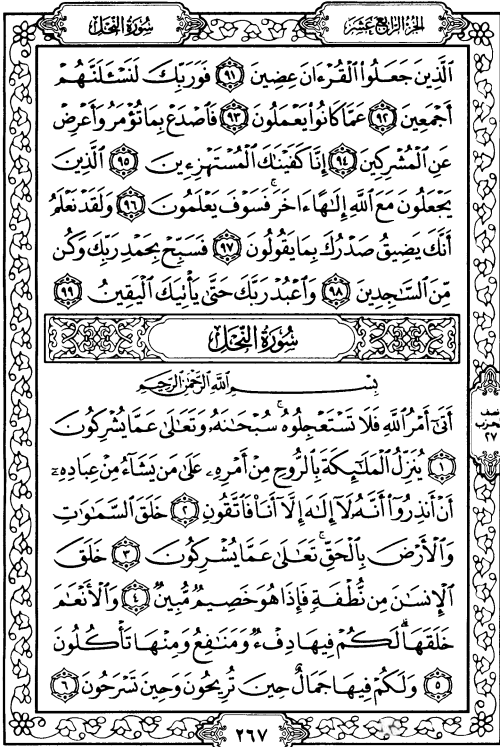 سُورَةُ النَّحْلِ
الجُزءُ الرَّابِعَ عَشَرَ
الَّذِينَ جَعَلُوا الْقُرْءَانَ عِضِينَ ﴿٩١﴾ فَوَرَبِّكَ لَنَسْـَٔلَنَّهُمْ
أَجْمَعِينَ ﴿٩٢﴾ عَمَّا كَانُوا يَعْمَلُونَ ﴿٩٣﴾ فَاصْدَعْ بِمَا تُؤْمَرُ وَأَعْرِضْ
عَنِ الْمُشْرِكِينَ ﴿٩٤﴾ إِنَّا كَفَيْنَاكَ الْمُسْتَهْزِءِينَ ﴿٩٥﴾ الَّذِينَ
يَجْعَلُونَ مَعَ اللَّهِ إِلَٰهًا ءَاخَرَ ۚ فَسَوْفَ يَعْلَمُونَ ﴿٩٦﴾ وَلَقَدْ نَعْلَمُ
أَنَّكَ يَضِيقُ صَدْرُكَ بِمَا يَقُولُونَ ﴿٩٧﴾ فَسَبِّحْ بِحَمْدِ رَبِّكَ وَكُن
مِّنَ السَّاجِدِينَ ﴿٩٨﴾ وَاعْبُدْ رَبَّكَ حَتَّىٰ يَأْتِيَكَ الْيَقِينُ ﴿٩٩﴾
سُورَةُ النَّحْلِ
بِسْمِ اللَّهِ الرَّحْمَٰنِ الرَّحِيمِ
أَتَىٰ أَمْرُ اللَّهِ فَلَا تَسْتَعْجِلُوهُ ۚ سُبْحَانَهُ وَتَعَالَىٰ عَمَّا يُشْرِكُونَ
﴿١﴾ يُنَزِّلُ الْمَلَائِكَةَ بِالرُّوحِ مِنْ أَمْرِهِ عَلَىٰ مَن يَشَاءُ مِنْ عِبَادِهِ
أَنْ أَنذِرُوا أَنَّهُ لَا إِلَٰهَ إِلَّا أَنَا فَاتَّقُونِ ﴿٢﴾ خَلَقَ السَّمَاوَاتِ
وَالْأَرْضَ بِالْحَقِّ ۚ تَعَالَىٰ عَمَّا يُشْرِكُونَ ﴿٣﴾ خَلَقَ
الْإِنسَانَ مِن نُّطْفَةٍ فَإِذَا هُوَ خَصِيمٌ مُّبِينٌ ﴿٤﴾ وَالْأَنْعَامَ
خَلَقَهَا ۗ لَكُمْ فِيهَا دِفْءٌ وَمَنَافِعُ وَمِنْهَا تَأْكُلُونَ
﴿٥﴾ وَلَكُمْ فِيهَا جَمَالٌ حِينَ تُرِيحُونَ وَحِينَ تَسْرَحُونَ ﴿٦﴾
نصف
الحزب
٢٧
٢٦٧